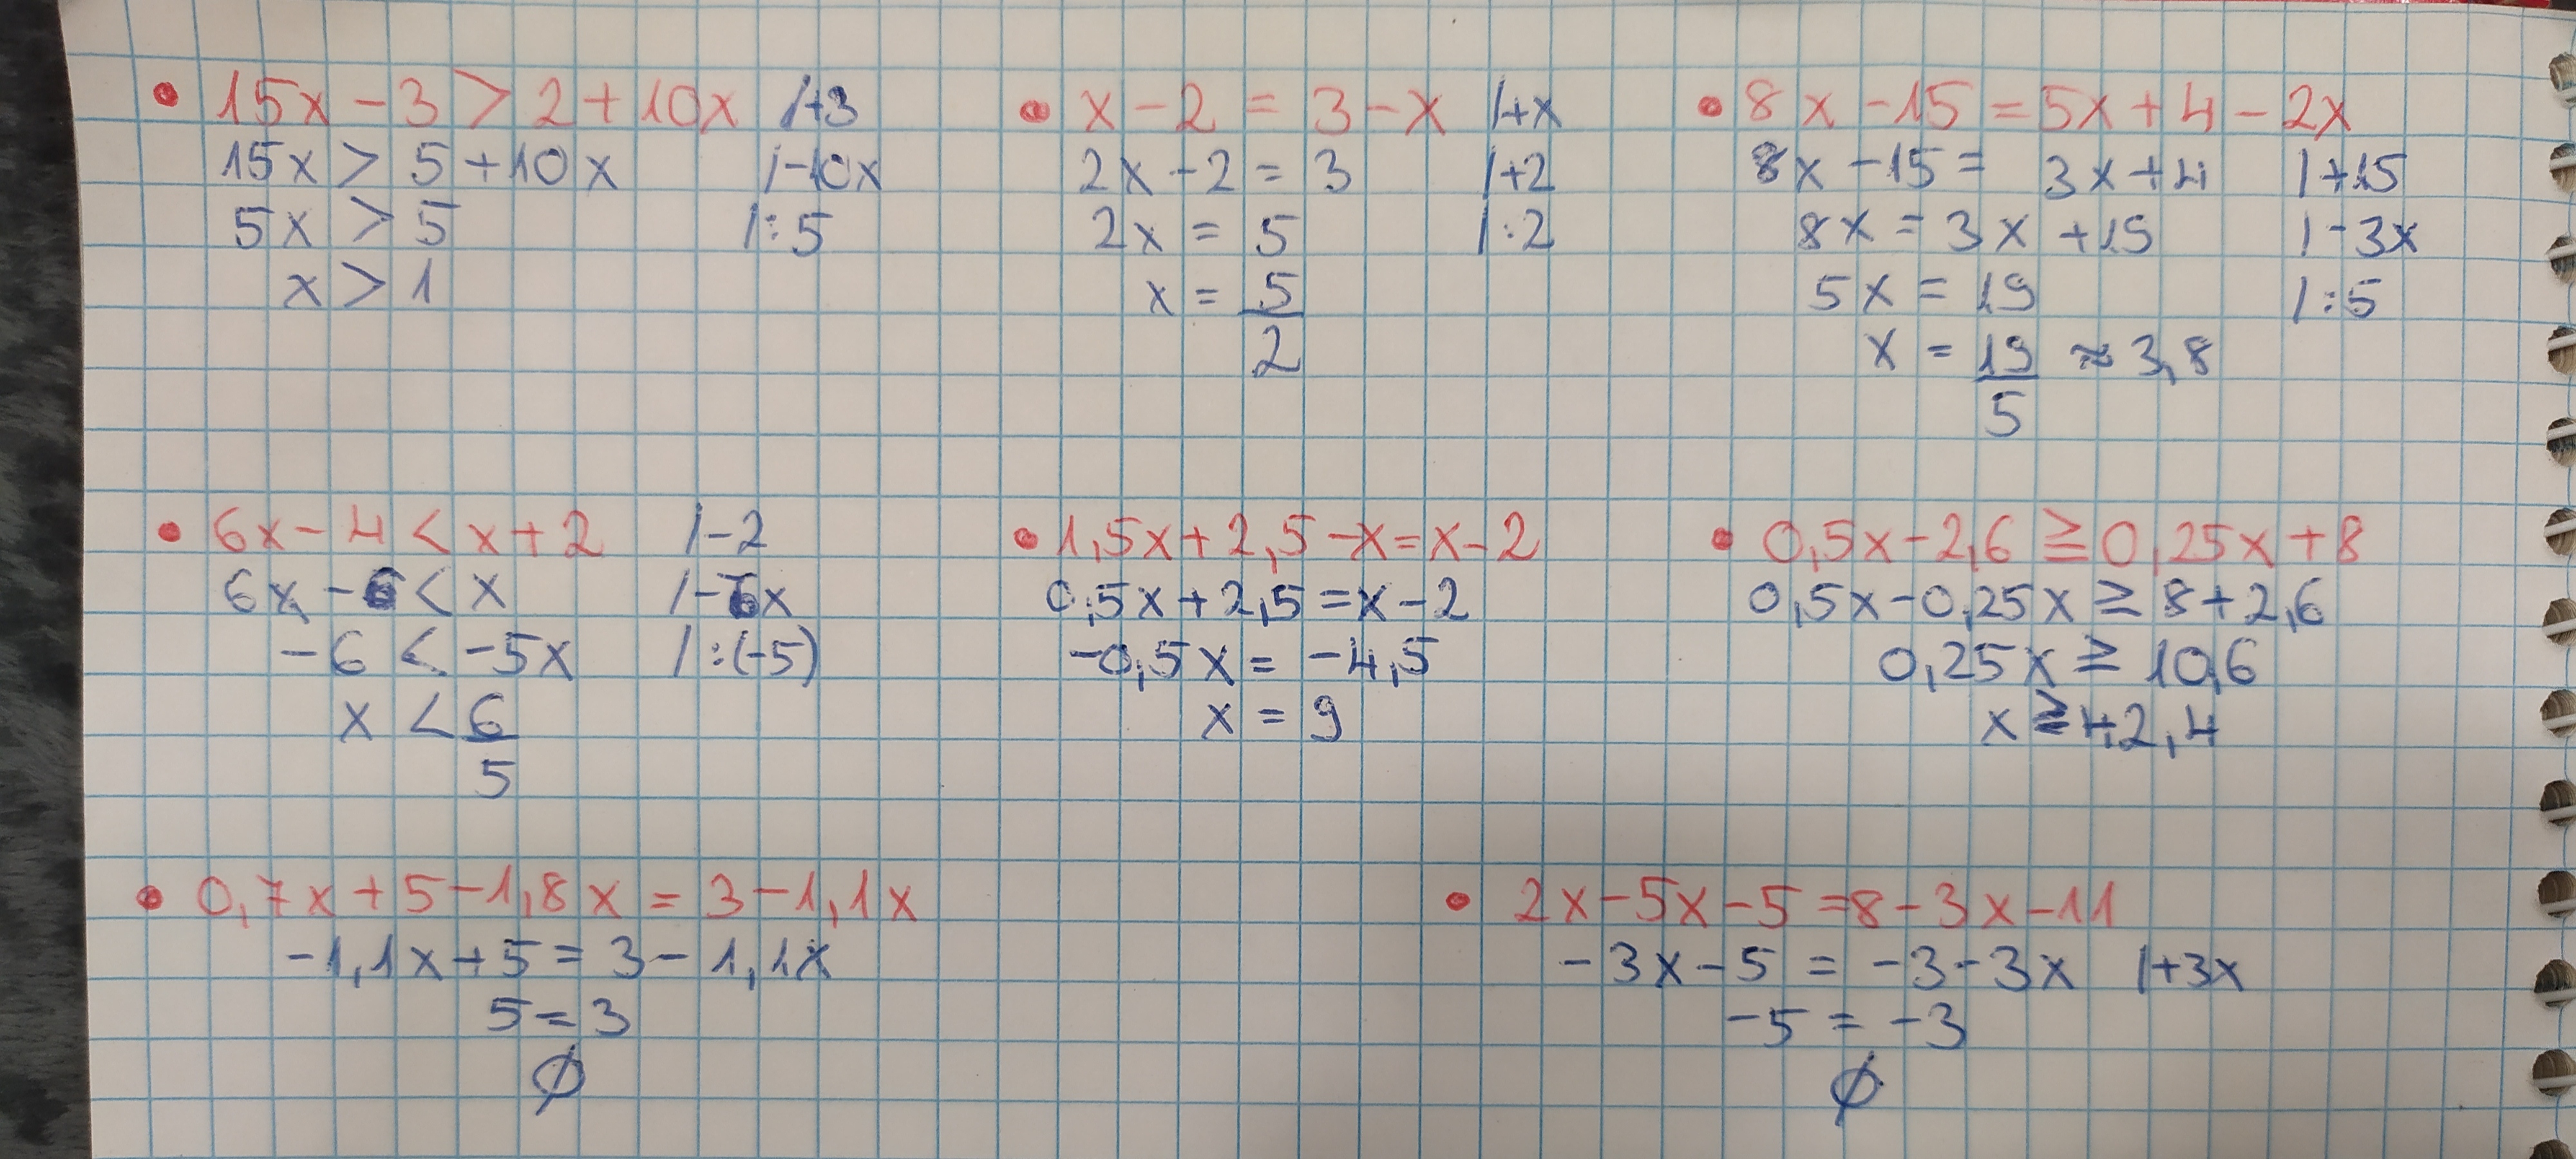 • 15x - 3 > 2 + 10x /+3
15x > 5 + 10x /-10x
5x > 5 /:5
x > 1
• x - 2 = 3 - x /+x
2x - 2 = 3 /+2
2x = 5 /:2
x = 5/2
• 8x - 15 = 5x + 4 - 2x
8x - 15 = 3x + 4 /+15
8x = 3x + 19 /-3x
5x = 19 /:5
x = 19/5 ≈ 3,8
• 6x - 4 < x + 2 /-2
6x - 6 < x /-6x
-6 < -5x /:(-5)
x < 6/5
• 1,5x + 2,5 - x = x - 2
0,5x + 2,5 = x - 2
-0,5x = -4,5
x = 9
• 0,5x - 2,6 ≧ 0,25x + 8
0,5x - 0,25x ≥ 8 + 2,6
0,25x ≥ 10,6
x ≥ 42,4
• 0,7x + 5 - 1,8x = 3 - 1,1x
-1,1x + 5 = 3 - 1,1x
5 = 3
∅
• 2x - 5x - 5 = 8 - 3x - 11
-3x - 5 = -3 - 3x /+3x
-5 = -3
∅